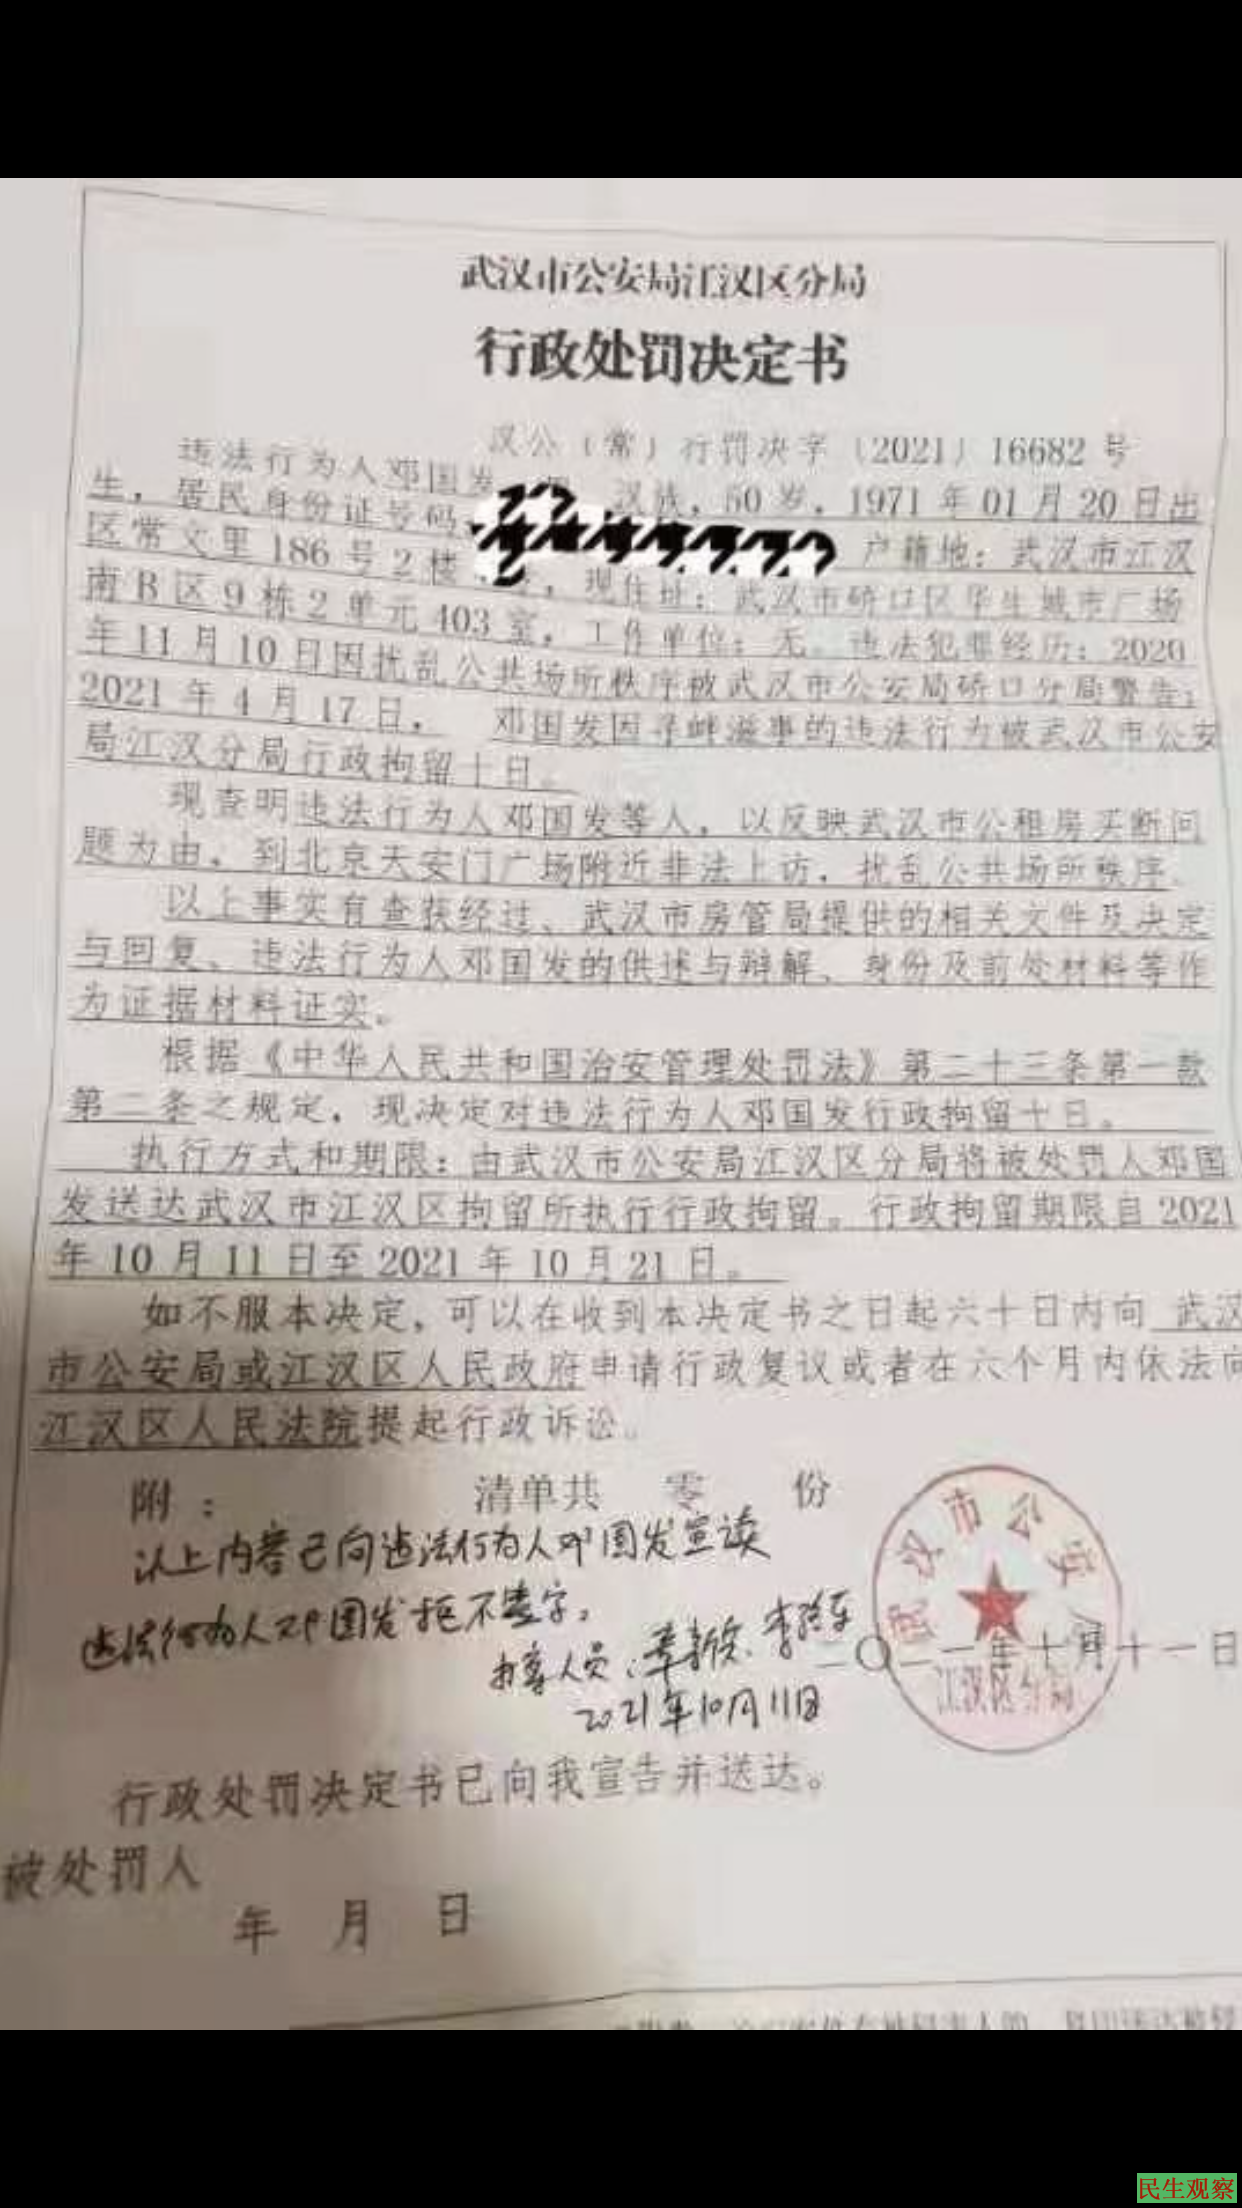 武汉市公安局江汉区分局
行政处罚决定书
汉公（常）行罚决字〔2021〕16682 号
违法行为人邓国发 汉族，50 岁，1971 年 01 月 20 日出
生，居民身份证号码 户籍地：武汉市江汉
区常文里 186 号 2 楼 现住址：武汉市硚口区华生城市广场
南 B 区 9 栋 2 单元 403 室，工作单位：无。违法犯罪经历：2020
年 11 月 10 日因扰乱公共场所秩序被武汉市公安局硚口分局警告；
2021 年 4 月 17 日， 邓国发因寻衅滋事的违法行为被武汉市公安
局江汉分局行政拘留十日。
现查明违法行为人邓国发等人，以反映武汉市公租房买断问
题为由，到北京天安门广场附近非法上访，扰乱公共场所秩序。
以上事实有查获经过、武汉市房管局提供的相关文件及决定
与回复、违法行为人邓国发的供述与辩解、身份及前处材料等作
为证据材料证实。
根据《中华人民共和国治安管理处罚法》第二十三条第一款
第二条之规定，现决定对违法行为人邓国发行政拘留十日。
执行方式和期限：由武汉市公安局江汉区分局将被处罚人邓国
发送达武汉市江汉区拘留所执行行政拘留。行政拘留期限自 2021
年 10 月 11 日至 2021 年 10 月 21 日。
如不服本决定，可以在收到本决定书之日起六十日内向 武汉
市公安局或江汉区人民政府申请行政复议或者在六个月内依法向
江汉区人民法院提起行政诉讼。
附： 清单共 零 份
以上内容已向违法行为人邓国发宣读
违法行为人邓国发拒不签字。
办案人员：
2021年10月11日
武汉市公安局
江汉区分局
二〇二一年十月十一日
行政处罚决定书已向我宣告并送达。
被处罚人
年 月 日
民生观察